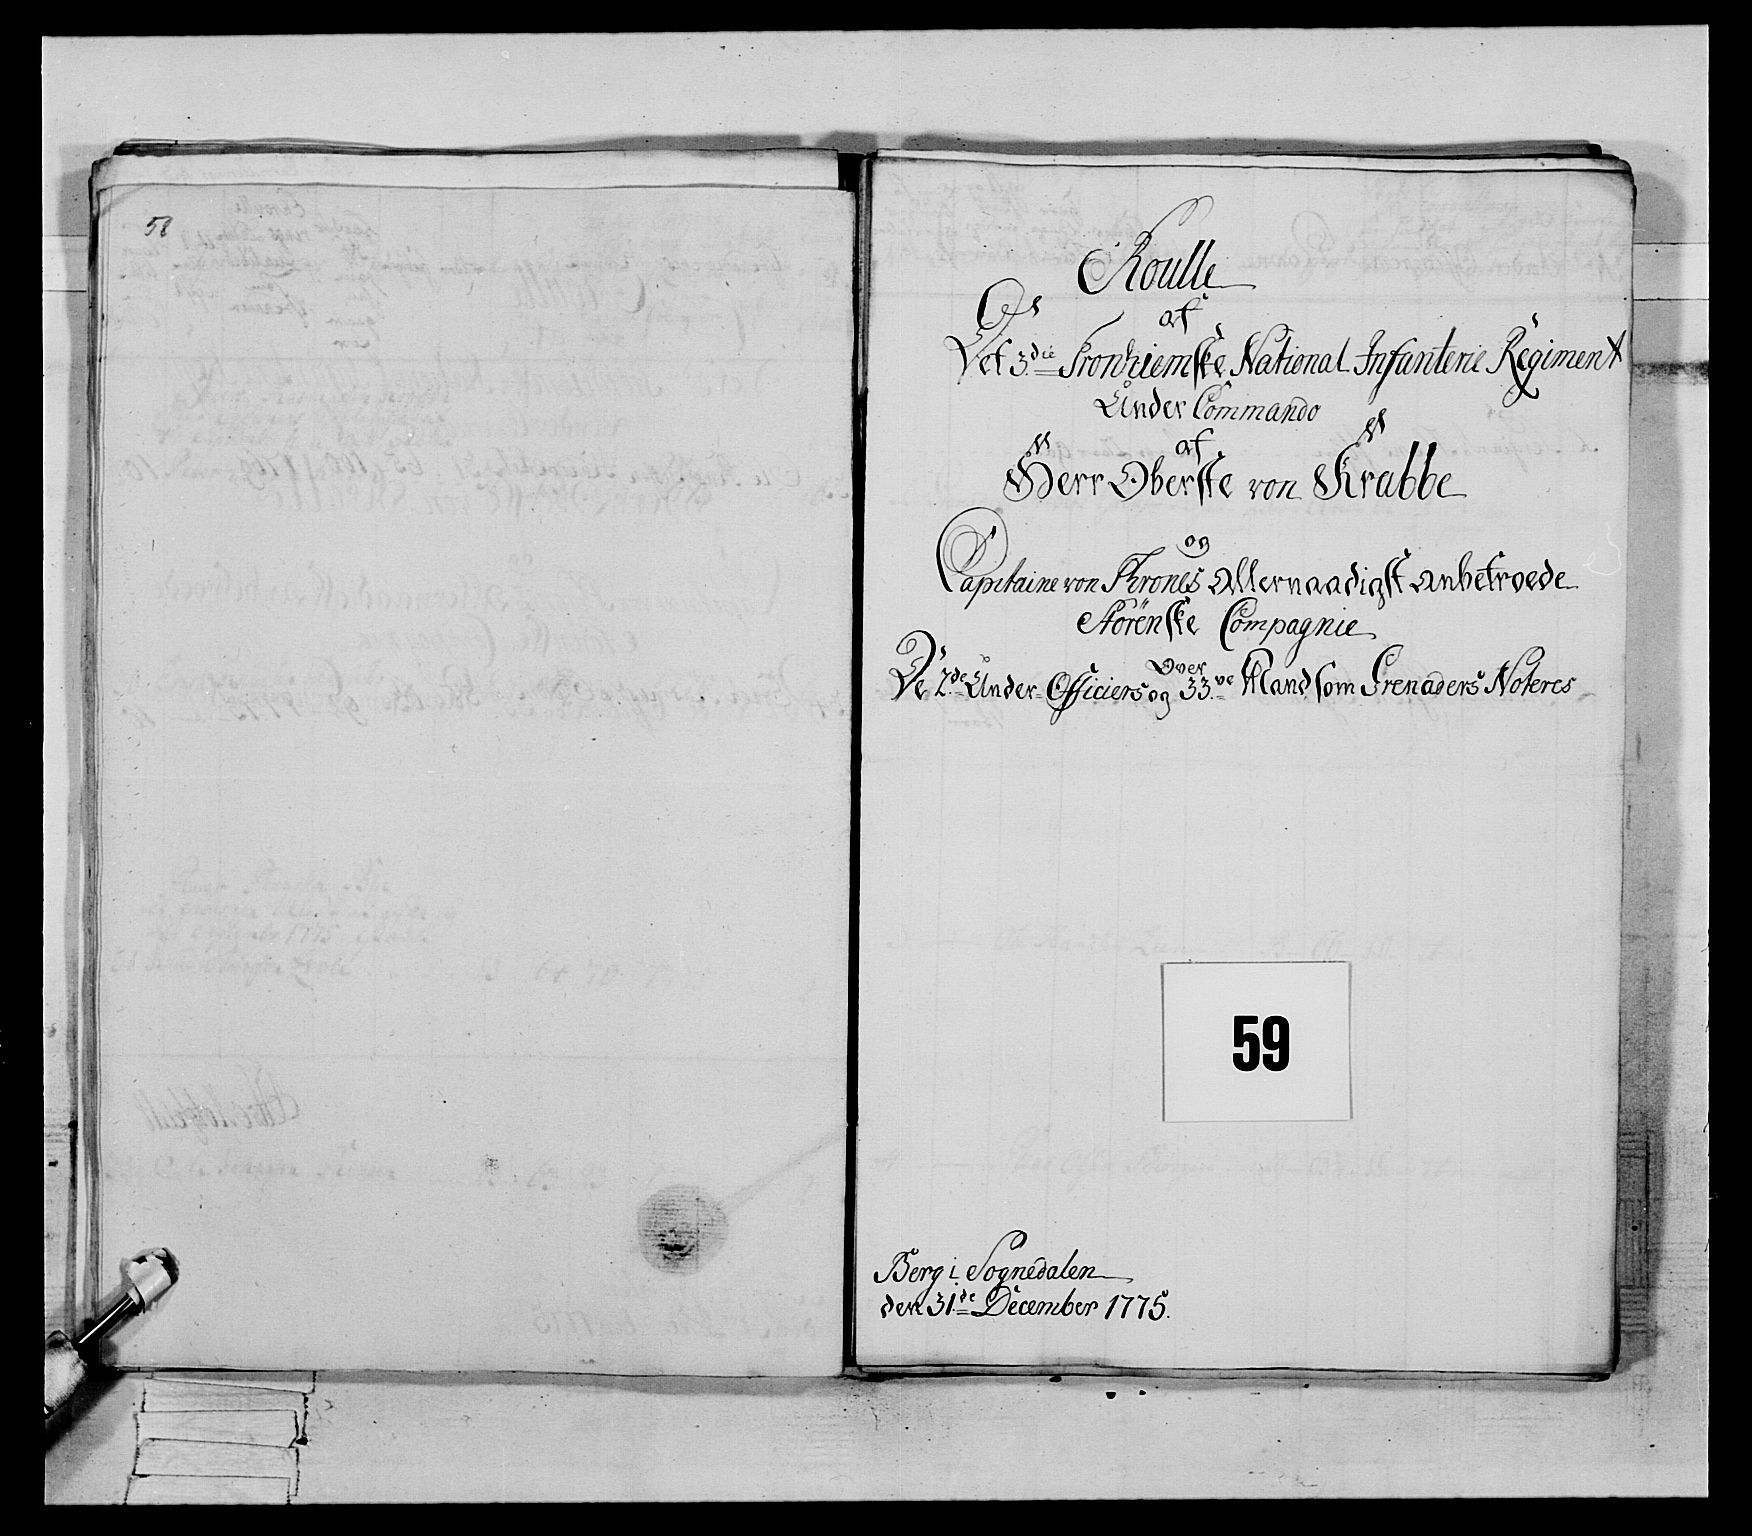 58
Roulle
af
Det 3die Tronhiemske National Infanterie Regiment
Under Commando
af
Herr Oberste von Krabbe
og
Capitaine von Krones Allernaadigst anbetroede
Störenske Compagnie
Over
De 2de Under Officiers og 33ve Mand som Grenaders Noteres
59
Berg i Sognedalen
den 31de December 1775.